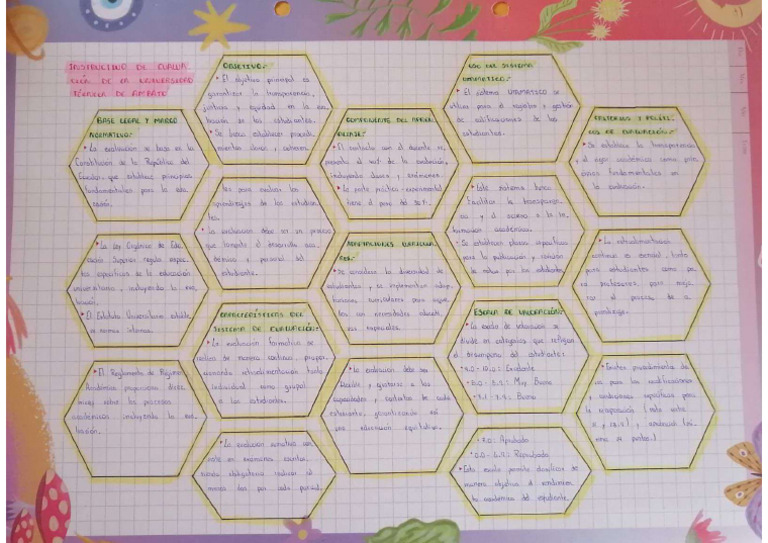 INSTRUCTIVO DE EVALUA
CIÓN DE LA UNIVERSIDAD
TÉCNICA DE AMBATO
BASE LEGAL Y MARCO
NORMATIVO:
• La evaluación se basa en la
Constitución de la República del
Ecuador, que establece principios
fundamentales para la edu
cación.
• La Ley Orgánica de Edu
cación Superior regula aspec
tos específicos de la educación
universitaria, incluyendo la eva
luación.
• El Estatuto Universitario establece
normas internas.
• El Reglamento de Régimen
Académico proporciona direc
trices sobre los procesos
académicos incluyendo la eva
luación.
OBJETIVO:
• El objetivo principal es
garantizar la transparencia,
justicia y equidad en la eva
luación de los estudiantes.
• Se busca establecer procedi
mientos claros y coherentes
para evaluar los
aprendizajes de los estudian
tes.
• La evaluación debe ser un proceso
que fomente el desarrollo aca
démico y personal del
estudiante.
CARACTERÍSTICAS DEL
SISTEMA DE EVALUACIÓN:
• La evaluación formativa se
realiza de manera continua, propor
cionando retroalimentación tanto
individual como grupal
a los estudiantes.
• La evaluación sumativa con
siste en exámenes escritos,
siendo obligatorio realizar al
menos dos por cada parcial.
COMPONENTE DEL APREN
DIZAJE:
• El contacto con el docente re
presenta el de la evaluación,
incluyendo clases y exámenes.
• La parte práctico-experimental
tiene el peso del 30%.
ADAPTACIONES CURRICULA
RES:
• Se considera la diversidad de
estudiantes y se implementan adap
taciones curriculares para aque
llos con necesidades educati
vas especiales.
• La evaluación debe ser
flexible y ajustarse a las
capacidades y contextos de cada
estudiante, garantizando así
una educación equitativa.
USO DEL SISTEMA
UTAMATICO:
• El sistema UTAMATICO se
utiliza para el registro y gestión
de calificaciones de los
estudiantes.
• Este sistema busca
facilitar la transparen
cia y el acceso a la in
formación académica.
• Se establecen plazos específicos
para la publicación y revisión
de notas por los estudiantes.
ESCALA DE VALORACIÓN:
• La escala de valoración se
divide en categorías que reflejan
el desempeño del estudiante:
Excelente
Muy Bueno
Bueno
Aprobado
Reprobado
• Esta escala permite clasificar de
manera objetiva el rendimien
to académico del estudiante.
CRITERIOS Y POLÍTI
CAS DE EVALUACIÓN:
• Se establece la transparencia
y el rigor académico como prin
cipios fundamentales en
la evaluación.
• La retroalimentación
continua es esencial, tanto
para estudiantes como pa
ra profesores, para mejo
rar el proceso de a
prendizaje.
• Existen procedimientos cla
ros para las recalificaciones
y condiciones específicas para
la recuperación (nota entre